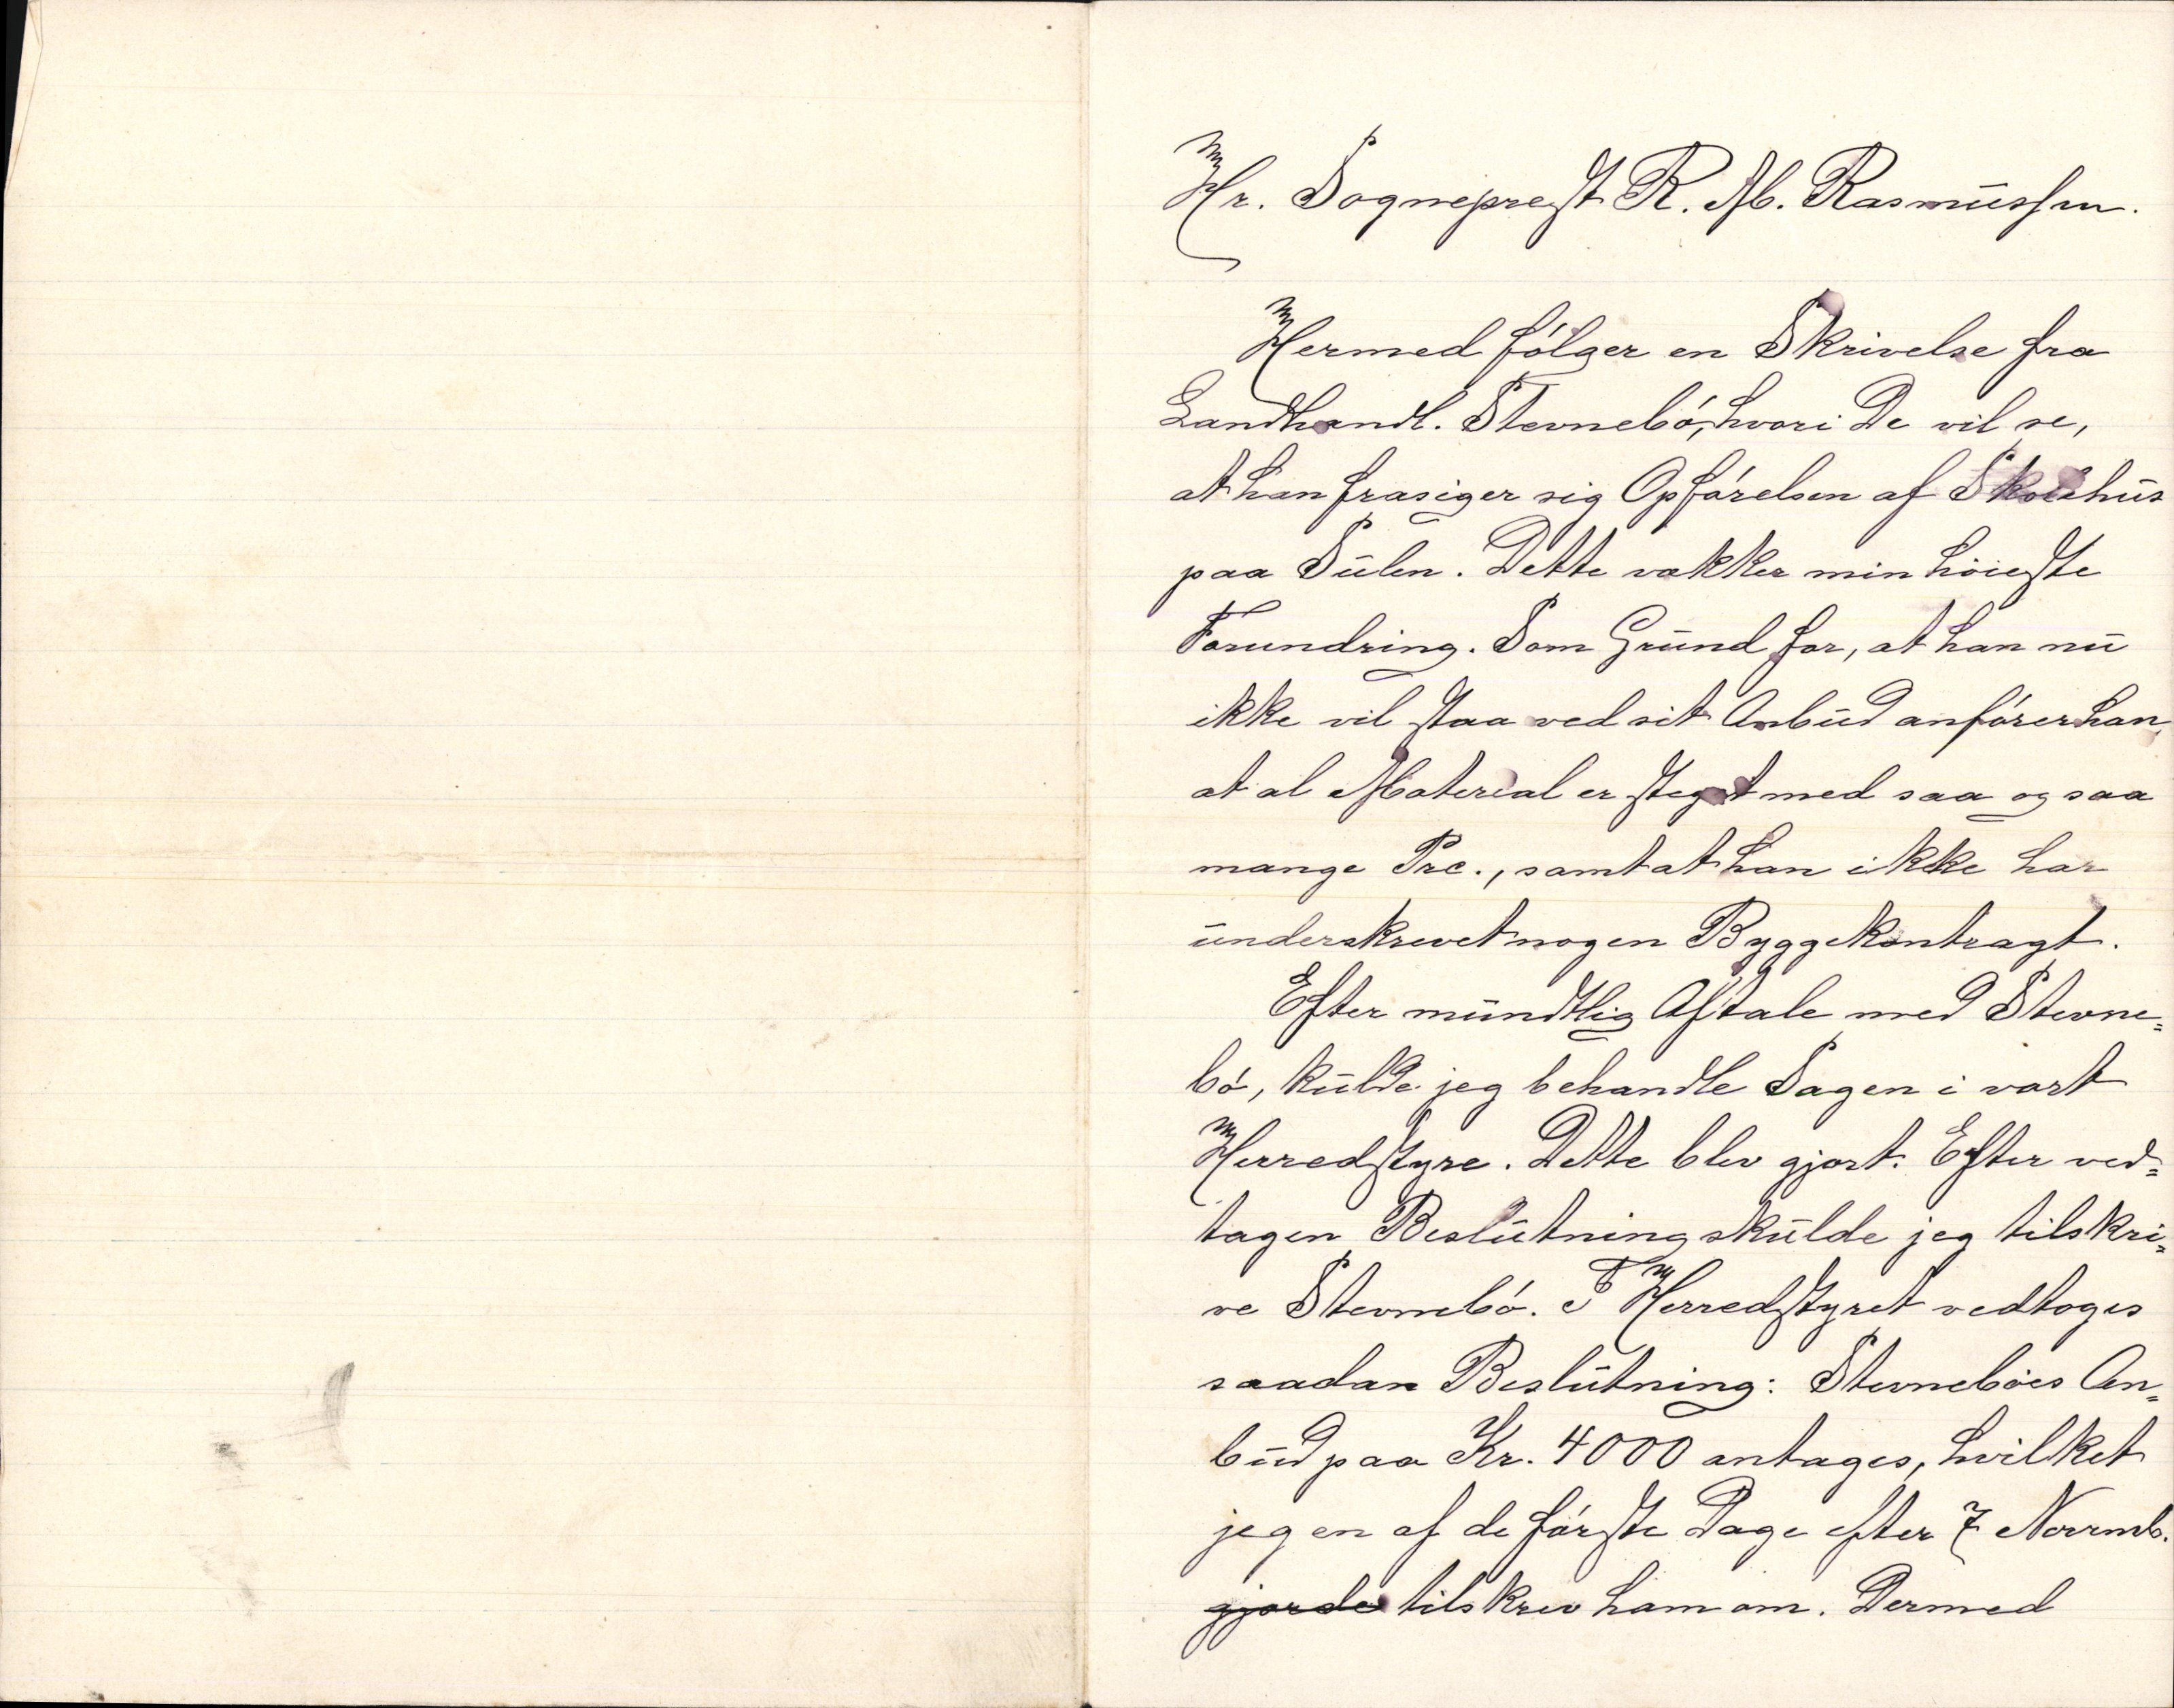 Hr. Sogneprest R. M. Rasmussen.
Hermed fólger en Skrivelse fra
Landhandl. Stevnebó, hvori De vil se,
at han frasiger sig Opfórelsen af Skolehus
paa Sulen. Dette vækker min hóieste
Forundring. Som Grund for, at han nu
ikke vil staa ved sit Anbud anfórer han,
at al Material er steget med saa og saa
mange Prc., samt at han ikke har
underskrevet nogen Byggekontragt.
Efter mundtlig Aftale med Stevne=
bó, kulde jeg behandle Sagen i vort
Herredstyre. Dette blev gjort. Efter ved=
tagen Beslutning skulde jeg tilskri=
ve Stevnebó. I Herredstyret vedtoges
saadan Beslutning: Stevnebóes An=
bud paa Kr. 4000 antages, hvilket
jeg en af de fórste Dage efter 7 Novmb.
gjorde tilskrev ham om. Dermed